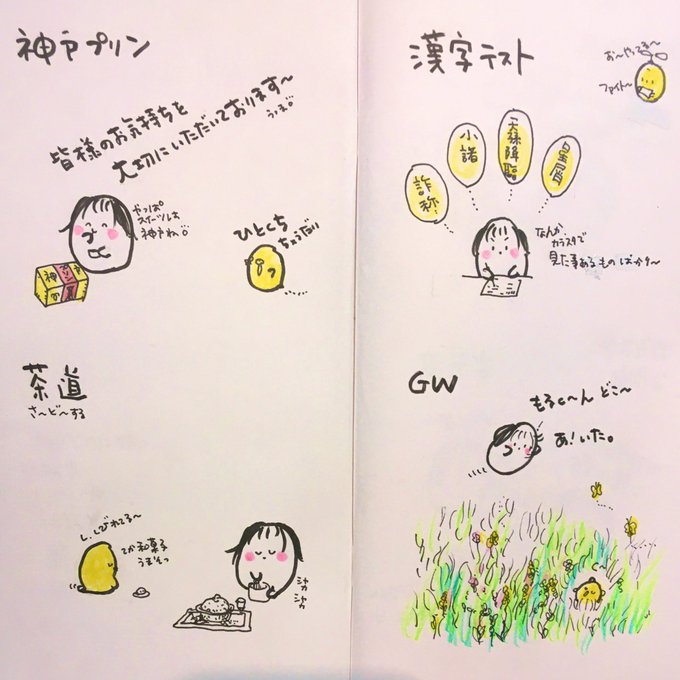 神戸プリン
皆様のお気持ちを
大切にいただいております〜
やっぱ
スイーツは
神戸ね。
神戸
プリン
ひとくち
ちょうだい
漢字テスト
お〜やってる〜
ファイト〜
詐称
小諸
天孫降臨
星屑
なんか
カラスタで
見た事あるものばかり〜
茶道
さ〜ど〜する
し、しびれてる〜
てか和菓子
うまそっ
シャカ
シャカ
GW
もるc〜ん どこ〜
あ!いた。